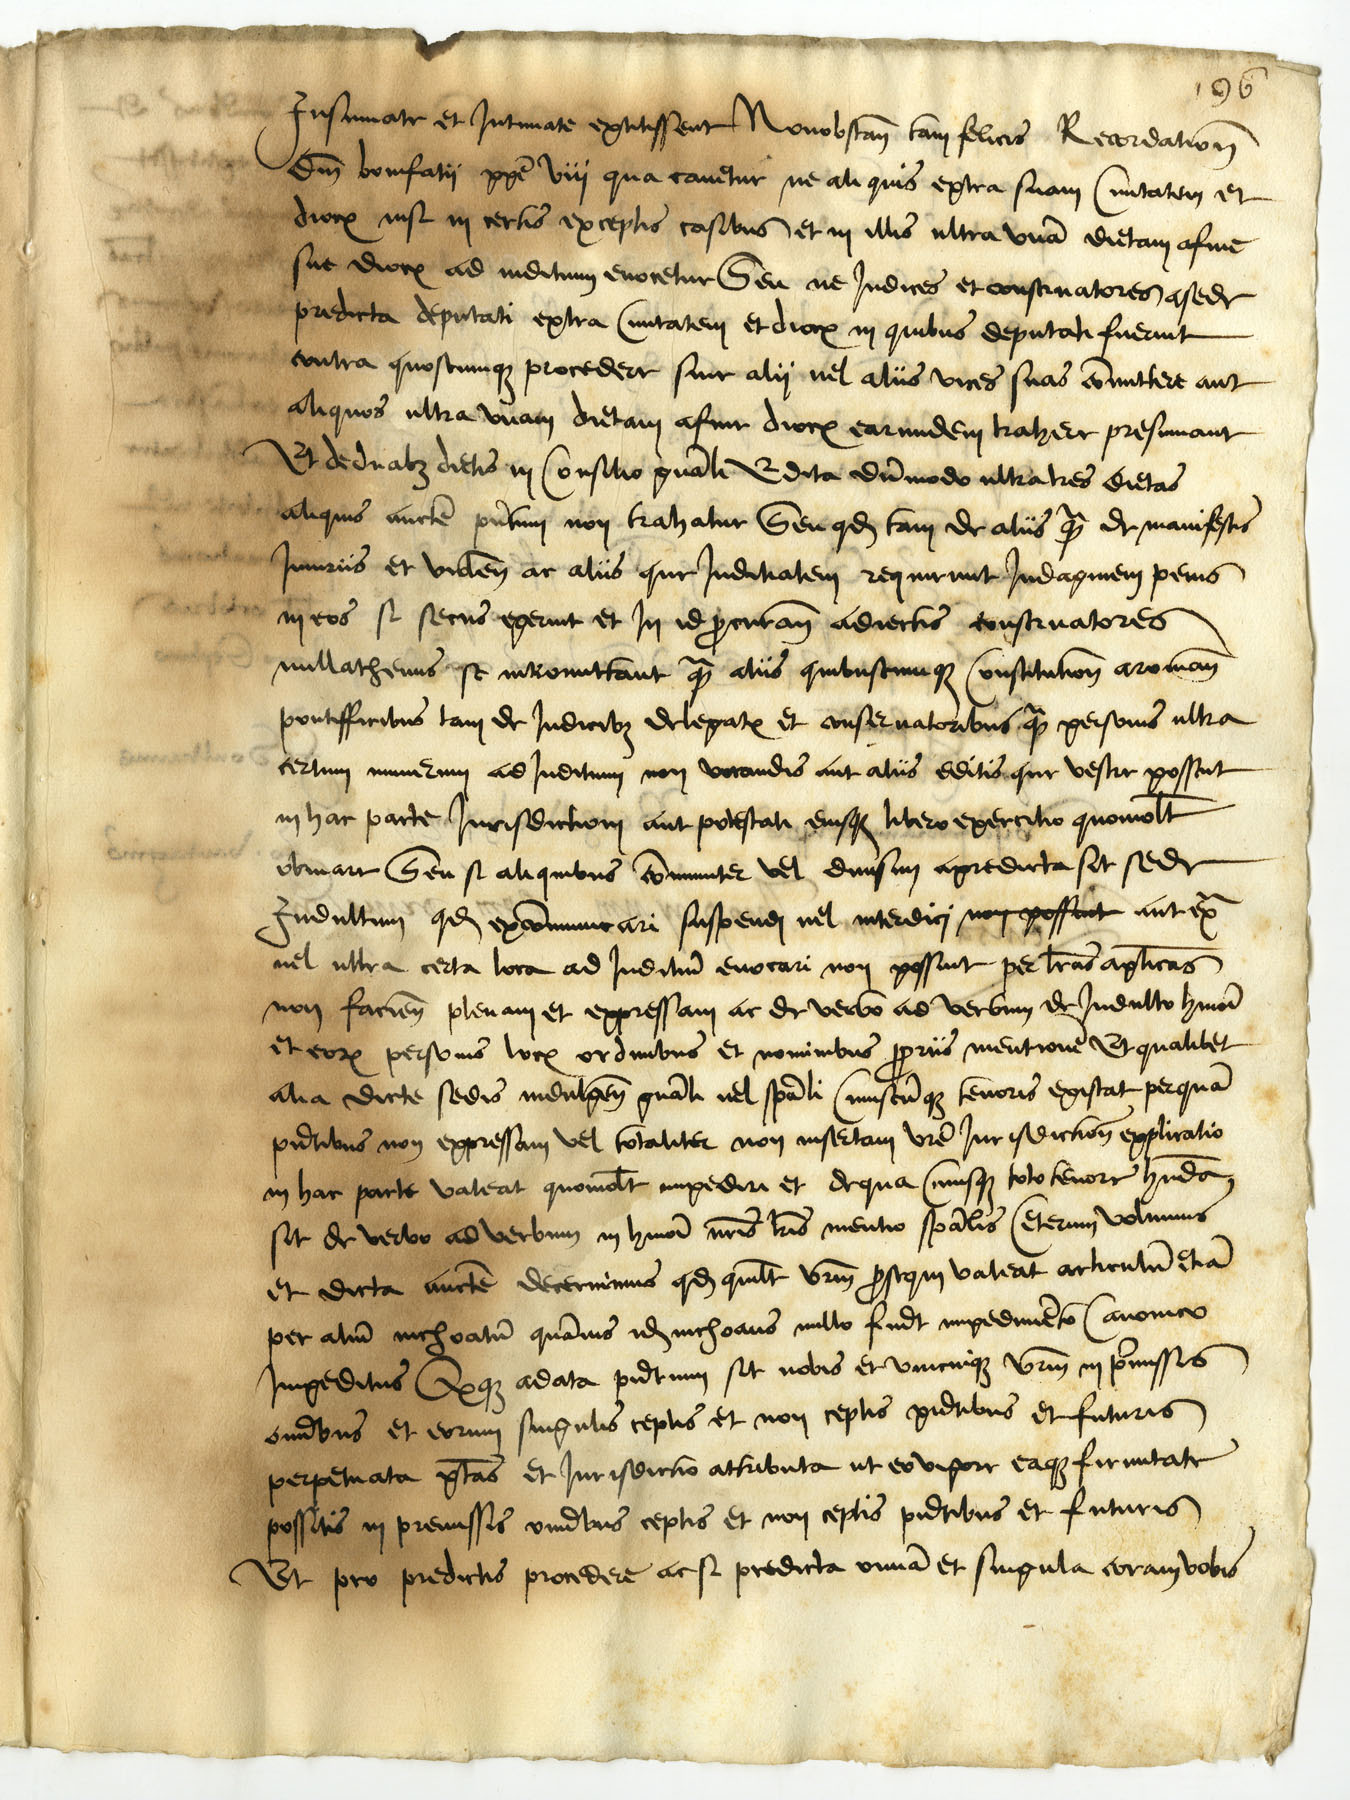 196
Insinuate et Intimate extitissent Nonobstan tam felicis Recordation
Dni bonifatii ppe viii qua cavetur ne aliquis extra suam Civitatem et
dioc nisi in certis exceptis casibus et in illis ultra unā dietam afine
sue dioc ad iuditium evocetur Seu ne Iudices et conservatores asede
predicta deputati extra Civitatem et dioc in quibus deputati fuerint
contra quoscumq procedere sive alii vel aliis vices suas cōmittere aut
aliquos ultra unam dietam afine dioc earundem trahere presumant
Et de duabz dietis in Consilio gnāli Edita dūmodo ultra tres dietas
aliquis aucte pntium non trahatur Seu qd tam de aliis qua de manifestis
Iniuriis et violen ac aliis que Iuditialem requirunt Indaginem penis
in eos si secus egerint et In id procuran adiectis conservatores
nullathenus se intromittant qua aliis quibuscumq Constitution aroman
pontifficibus tam de Iudicibz delegat et conservatoribus qua personis ultra
certum numerum ad Iuditium non vocandis aut aliis editis que vestre possent
in hac parte Iurisdictioni aut potestati eiusq libero exercitio quomolt
obviare Seu si aliquibus cōmuniter vel divisim apredicta sit sede
Indultum qd excōmunicari suspendi vel interdici non possint aut ex
vel ultra certa loca ad Iuditiū evocari non possint per lras aplicas
non facien plenam et expressam ac de verbo ad verbum de Indulto hmoi
et eor personis locis ordinibus et nominibus propriis mentione Et qualibet
alia dicte sedis indulgen gnāli vel spāli Cuiuscuq tenoris existat perquā
pntibus non expressam vel totaliter non insertam vre Iurisdiction explicatio
in hac parte valeat quomolt impediri et dequa Cuiusq toto tenore hnda
sit de verbo ad verbum in hmoi nris lris mentio spālis Ceterum volumus
et dicta aucte decernimus qd quilt vrm prosequi valeat articulū etiā
per aliū inchoatū quāvis id inchoans nullo fudt impedimēto Canonico
Impeditus Qq adata pntium sit vobis et unicuiq vrm in premissis
omibus et eorum singulis ceptis et non ceptis pntibus et futuris
perpetuata ptas et Iurisdictio attributa ut eo vigore eaq firmitate
possitis in premissis omibus ceptis et non ceptis pntibus et futuris
Et pro predictis procedere ac si predicta omnia et singula coram vobis